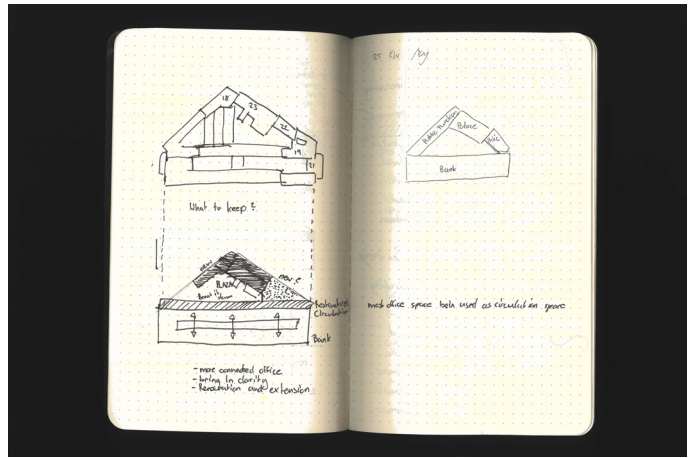 18
23
22
19
21
What to keep?
new
new?
PLAZA
Restructured
Circulation
Bank
- more connected office
- bring in clarity
- Renovation and extension
25
Public Function
Palace
Bank
most office space beh used as circulation space